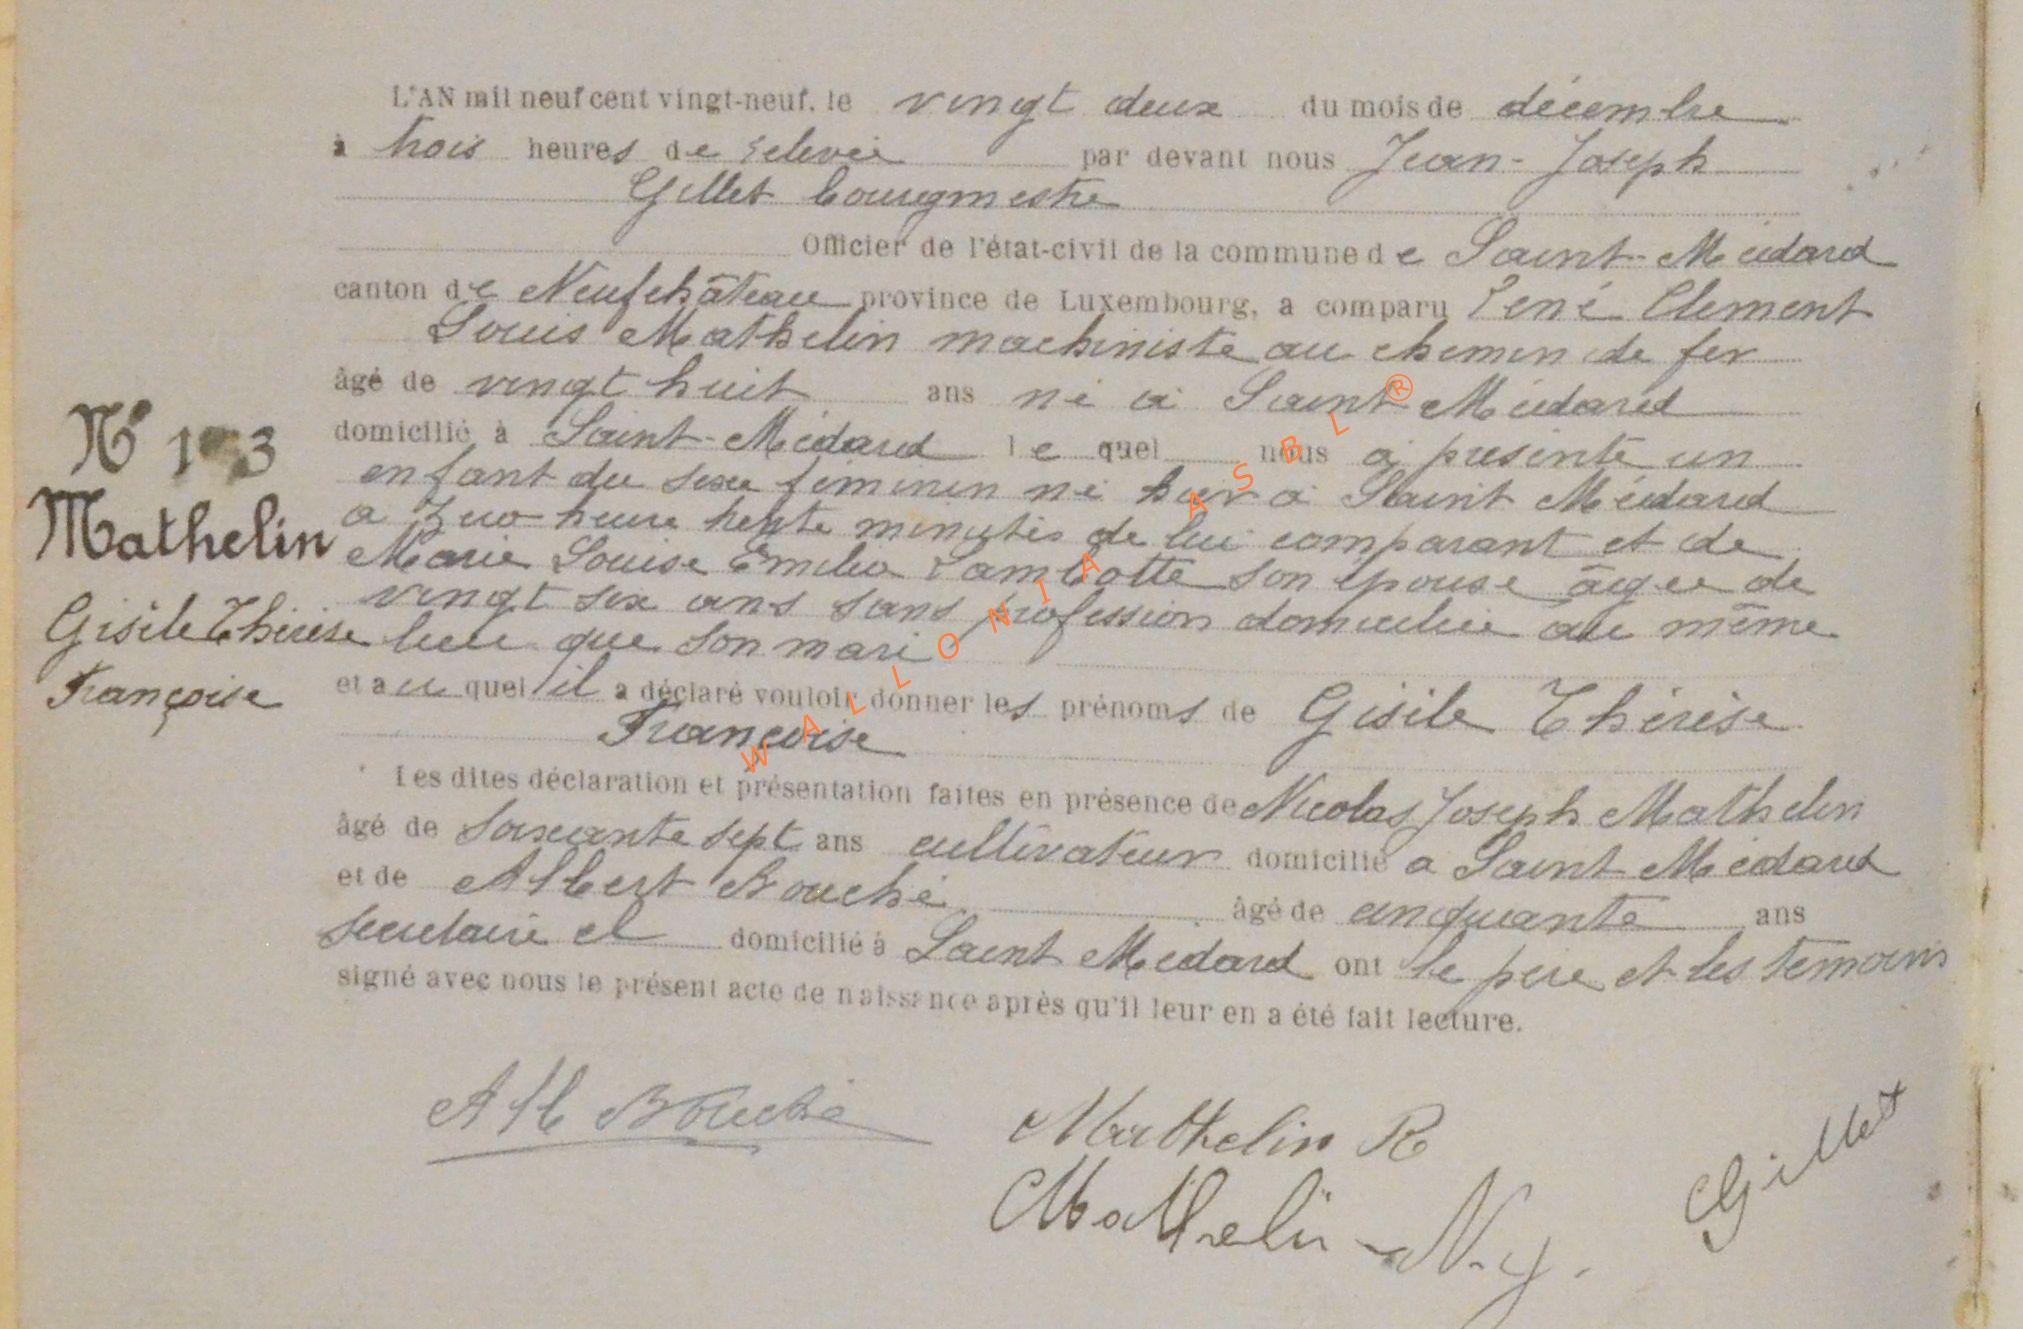 L'AN mil neuf cent vingt-neuf, le vingt deux du mois de décembre
à trois heures de relevée par devant nous Jean-Joseph
Gillet bourgmestre
Officier de l'état-civil de la commune de Saint-Médard
canton de Neufchâteau province de Luxembourg, a comparu René Clement
Louis Mathelin machiniste au chemin de fer
âgé de vingt huit ans né à Saint Médard
domicilié à Saint-Médard le quel nous a présenté un
enfant du sexe féminin né hier à Saint Médard
a zéro heure trente minutes de lui comparant et de
Marie Louise Emilie Lambotte son épouse âgée de
vingt six ans sans profession domiciliée au même
lieu que son mari
et au quel il a déclaré vouloir donner les prénoms de Gisèle Thérèse
Françoise
Les dites déclaration et présentation faites en présence de Nicolas Joseph Mathelin
âgé de soixante sept ans cultivateur domicilié a Saint Médard
et de Albert Bouché âgé de cinquante ans
secretaire cl domicilié à Saint Médard ont le père et les témoins
signé avec nous le présent acte de naissance après qu'il leur en a été fait lecture.
N° 13
Mathelin
Gisèle Thérèse
Françoise
Alb Bouché
Mathelin R
Mathelin N. J.
Gillet
WALLONIA ASBL ®